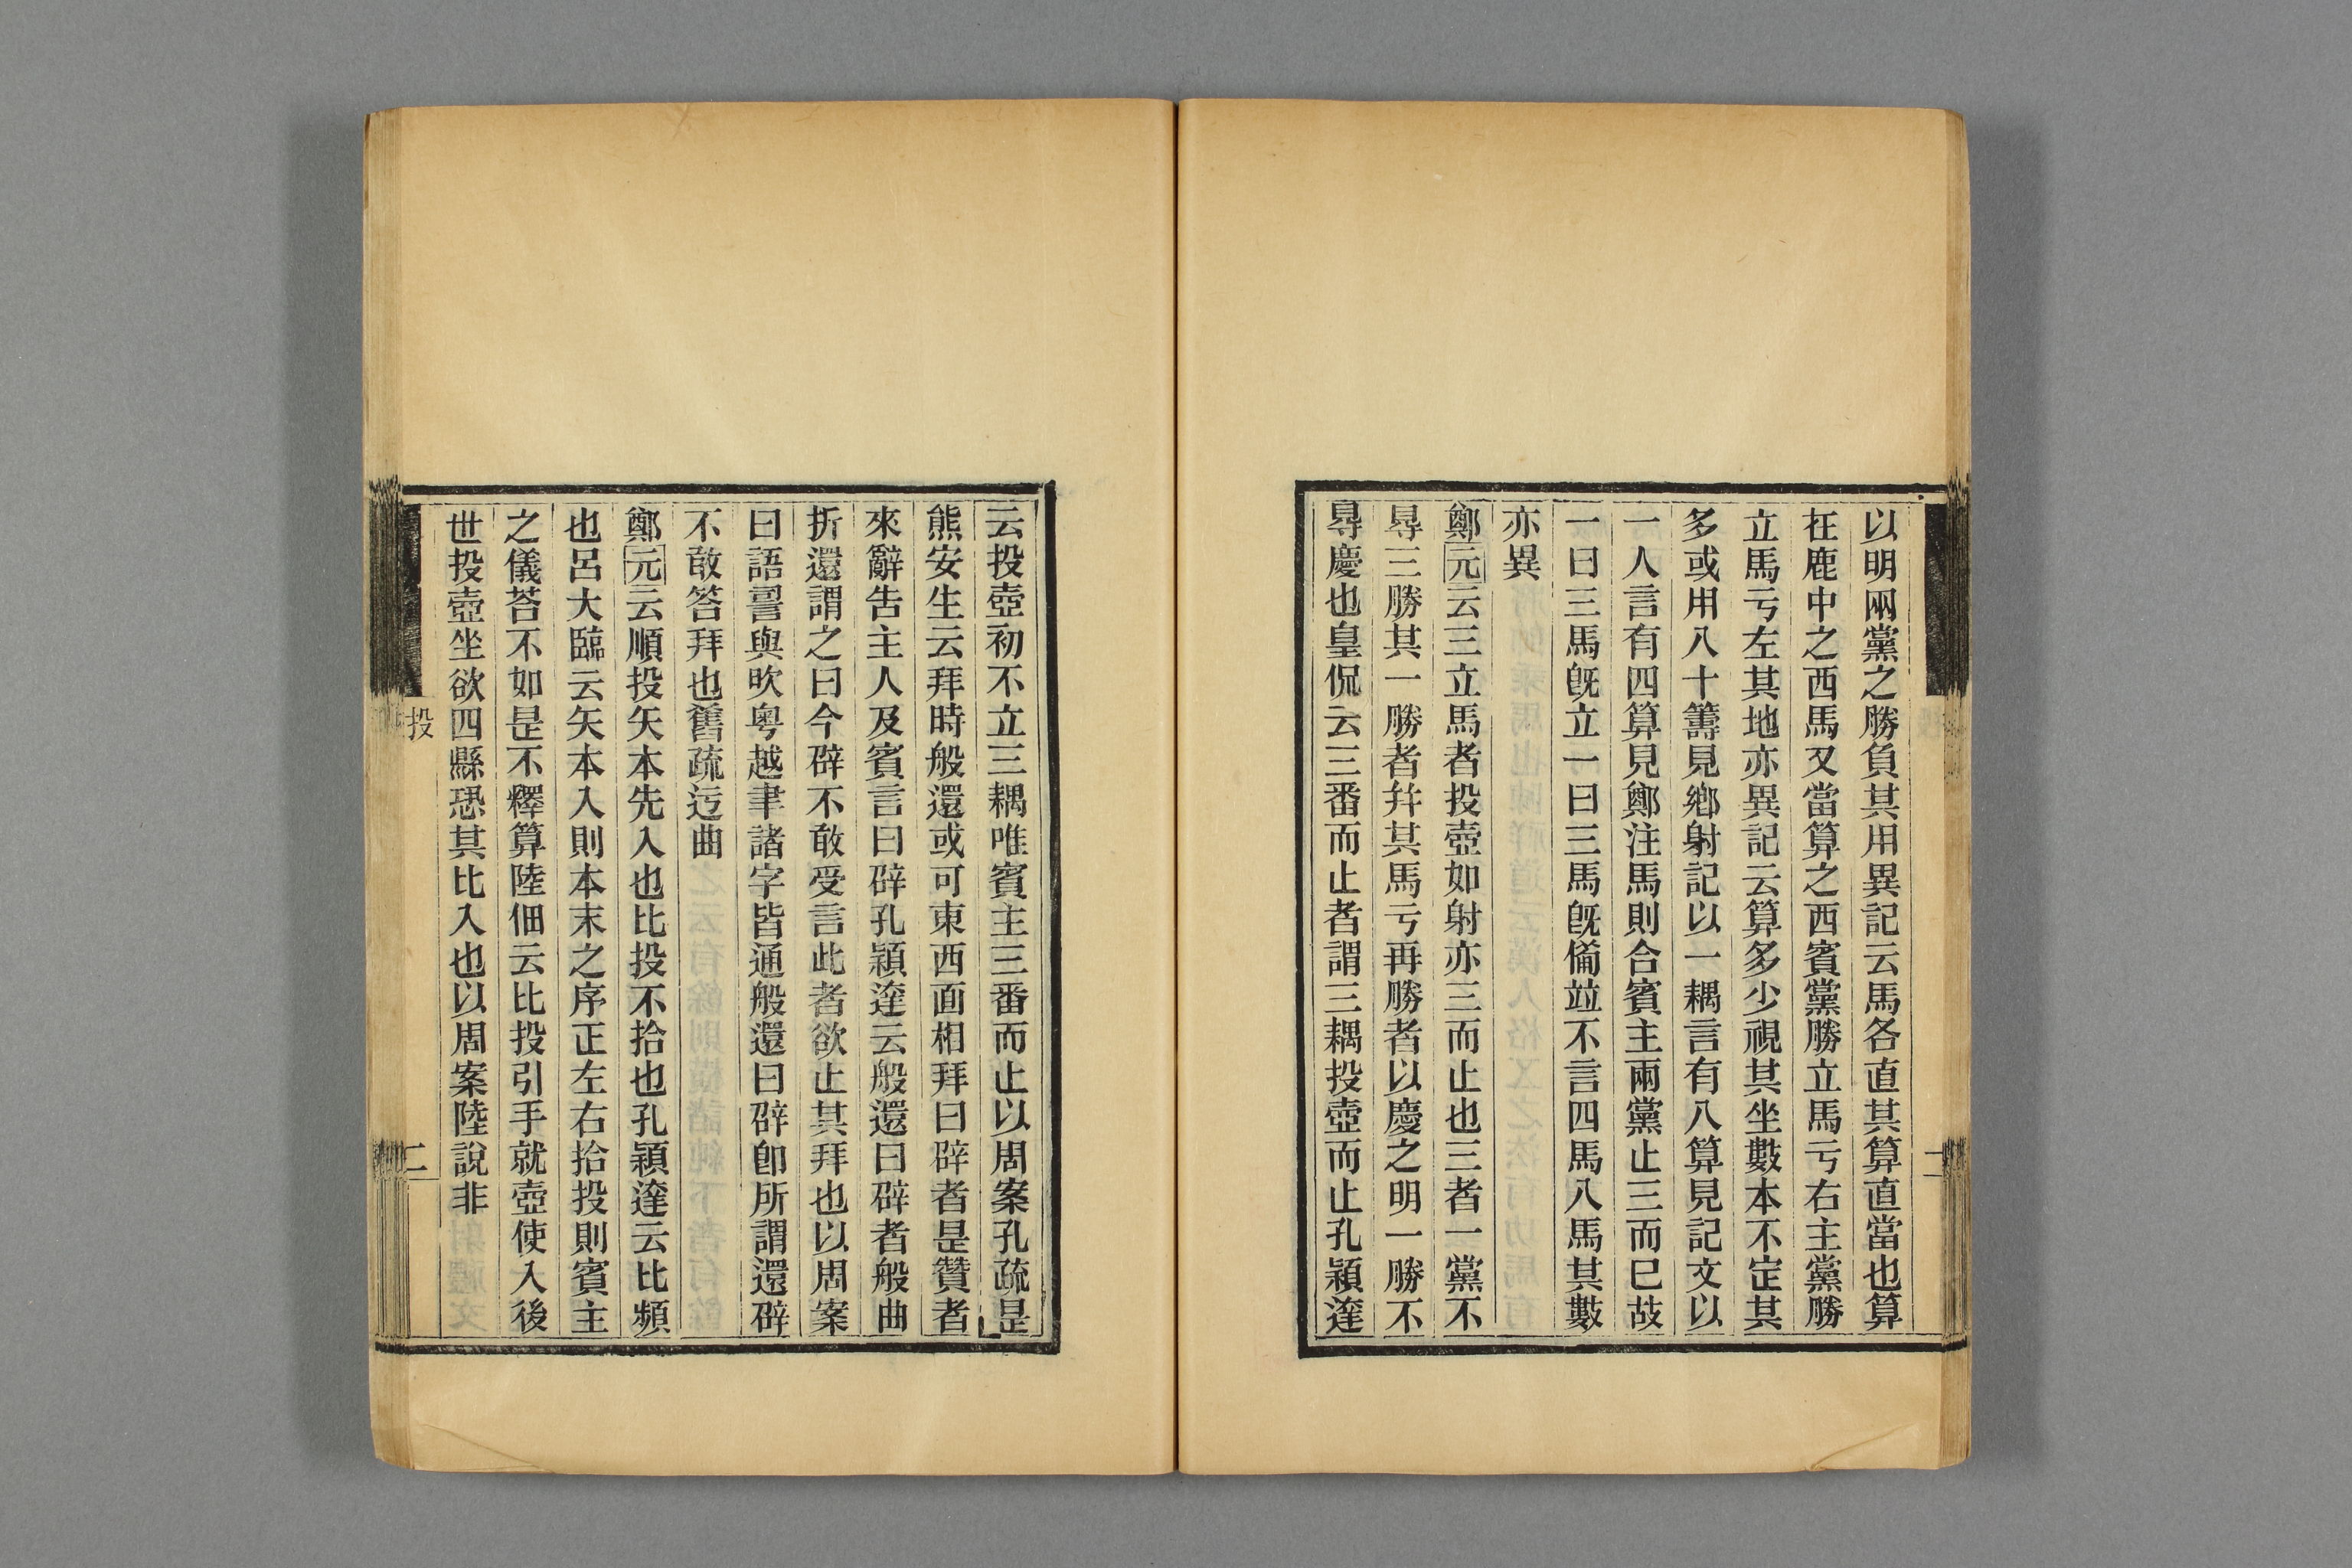 以明兩黨之勝負其用異記云馬各直其算直當也算
在鹿中之西馬又當算之西賓黨勝立馬亏右主黨勝
立馬亏左其地亦異記云算多少視其坐數本不定其
多或用八十籌見鄉射記以一耦言有八算見記文以
一人言有四算見鄭注馬則合賓主兩黨止三而已故
一曰三馬旣立一曰三馬旣僃竝不言四馬八馬其數
亦異
鄭元云三立馬者投壺如射亦三而止也三者一黨不
㝵三勝其一勝者幷其馬亏再勝者以慶之明一勝不
㝵慶也皇侃云三番而止者謂三耦投壺而止孔穎達
云投壺初不立三耦唯賓主三番而止以周案孔疏是
熊安生云拜時般還或可東西面相拜曰辟者是贊者
來辭告主人及賓言曰辟孔穎達云般還曰辟者般曲
折還謂之曰今辟不敢受言此者欲止其拜也以周案
曰語詈與欥粵越聿諸字皆通般還曰辟卽所謂還辟
不敢答拜也舊疏迃曲
鄭元云順投矢本先入也比投不拾也孔穎達云比頻
也呂大臨云矢本入則本末之序正左右拾投則賓主
之儀荅不如是不釋算陸佃云比投引手就壺使入後
世投壺坐欲四縣恐其比入也以周案陸說非
投
二